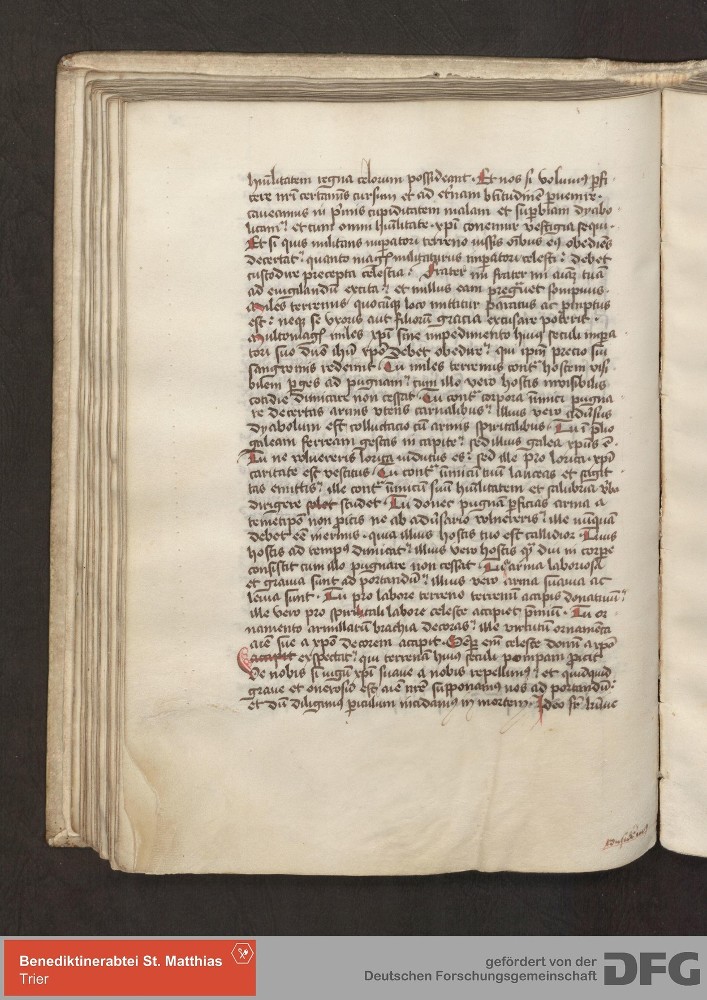 hu͞ilitatem regna celorum possideant · Et nos si volum9 ꝑfi
cere nr͞i certamīs cursum et ad et͞nam b͞titudinē ꝑuenire ·
caueamus in p͛mis cupiditatem malam et suꝑbiam dyabo
licam ⁊ et cum omni hu͞ilitate · xp͞i conemur vestigia sequi ·
Et si quis militans imꝑatori terreno iussis oībus eiꝯ obediēs
decertat ⁊ quanto magꝭ militaturus imꝑatori celesti ⁊ debet
custodire precepta celestia · frater mi frater mi aīaꝫ tuā
ad euigilandū excita ⁊ et illius eam pregͣuet sompnus ·
Miles terrenus quocūqꝫ loco mittitur paratus ac p͛mptus
est ⁊ neqꝫ se vxoris aut filiorum gracia excusare poterit ·
Multomagꝭ miles xp͞i sine impedimento huiꝯ seculi imꝑa
tori suo dn͞o ih͞u xp͞o debet obedire ⁊ qui ip͞m precio sui
sanguinis redemit · Tu miles terrenus contͣ hostem visi
bilem ꝑges ad pugnam ⁊ cum illo vero hostis inuisibilis
cotidie dimicare non cessat · Tu contͣ corpora inimici pugna
re decertas armis vtens carnalibus ⁊ illius vero aduersus
dyabolum est colluctacio cū armis spiritalibus · Tu ī p͛lio
galeam ferream gestas in capite ⁊ sed illius galea xp͞us ē ·
Tu ne vulnereris lorica indutus es ⁊ sed ille pro lorica · xp͞i
caritate est vestitus · Tu contͣ inimicū tuū lanceas et sagit
tas emittis ⁊ ille contͣ inimicū suū hu͞ilitatem et salubria v͞ba
dirigere solet studet · Tu donec pugnā ꝑficias arma a
temetip͞o non p͛icis ne ab adu͞sario vulnereris ⁊ ille nunquā
debet eē inermis · quia illius hostis tuo est callidior · Tuus
hostis ad tempꝯ dimicat ⁊ illius vero hostis qͣm diu in corpe
consistit cum illo pugnare non cessat · Tua arma laboriosa
et grauia sunt ad portandū ⁊ illius vero arma suauia ac
leuia sunt · Tu pro labore terreno terrenū accipis donatiuū ⁊
ille vero pro spiritali labore celeste accipiet p͛mium · Tu or
namento armillarū brachia decoras ⁊ ille virtutū ornamēta
aīe sue a xp͞o decorem accipit · Semꝑ eī celeste donū a xp͞o
accipit exspectat ⁊ qui terrenam huiꝯ seculi pompam p͛icit
Ve nobis si iugū xp͞i suaue a nobis repellimꝯ ⁊ et quicquid
graue et onerosū est aīe nr͞e supponamꝯ nos ad portandū ⁊
et dū diligimꝯ ꝑiculum incidamꝯ in mortem · Ideo fr͞ hanc
Benediktinerabtei St. Matthias
Trier
gefördert von der
Deutschen Forschungsgemeinschaft
DFG